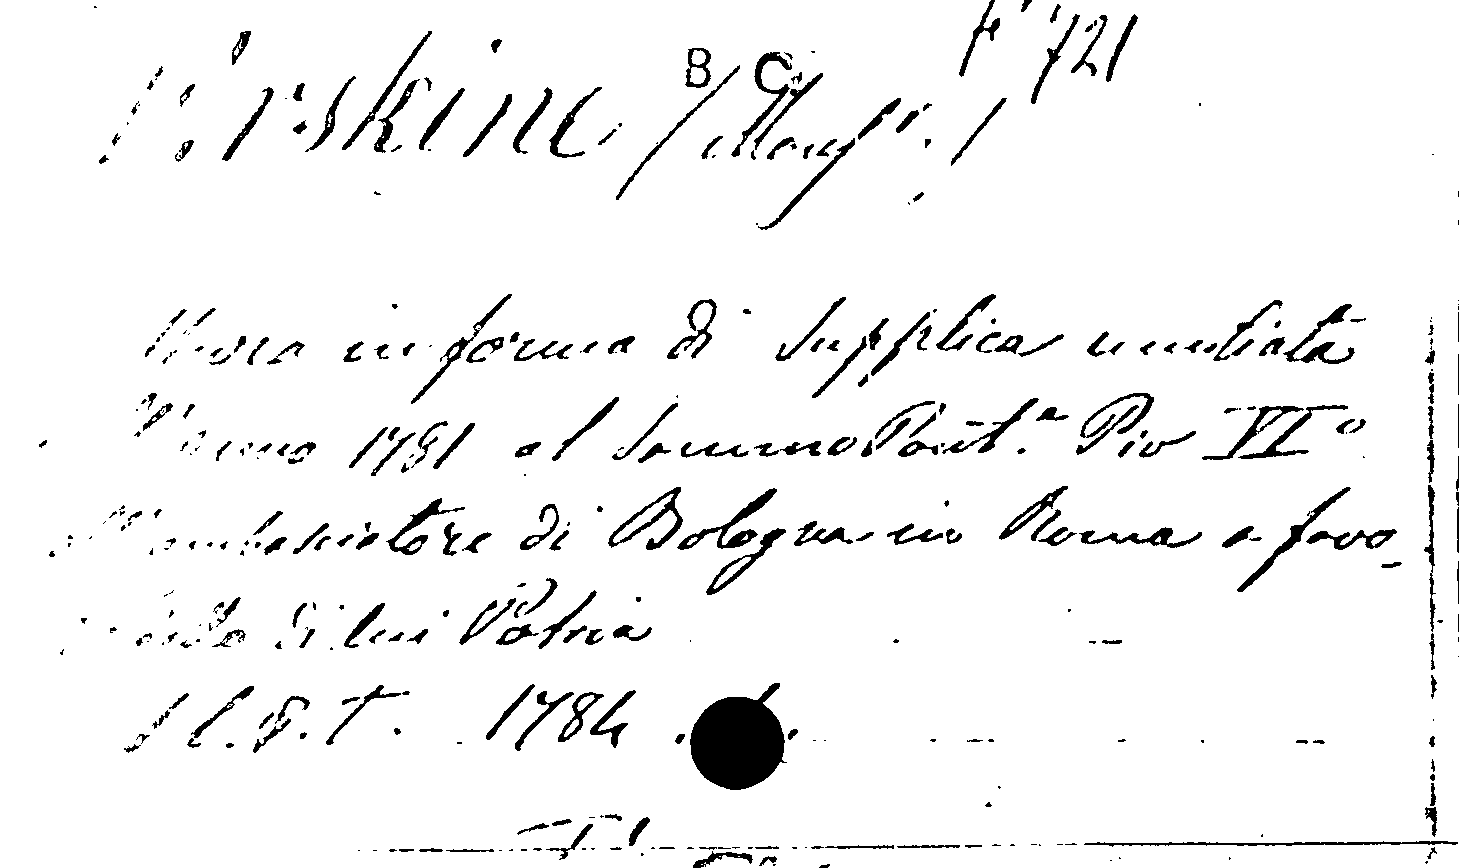 F 721
B C
Erskine / Monsr. /
in forma di Supplica umiliata
l'anno 1781 al Sommo Pont.e Pio VIo
Ambasciatore di Bologna in Roma a favo-
di lui Patria
s. l. e. t. 1784